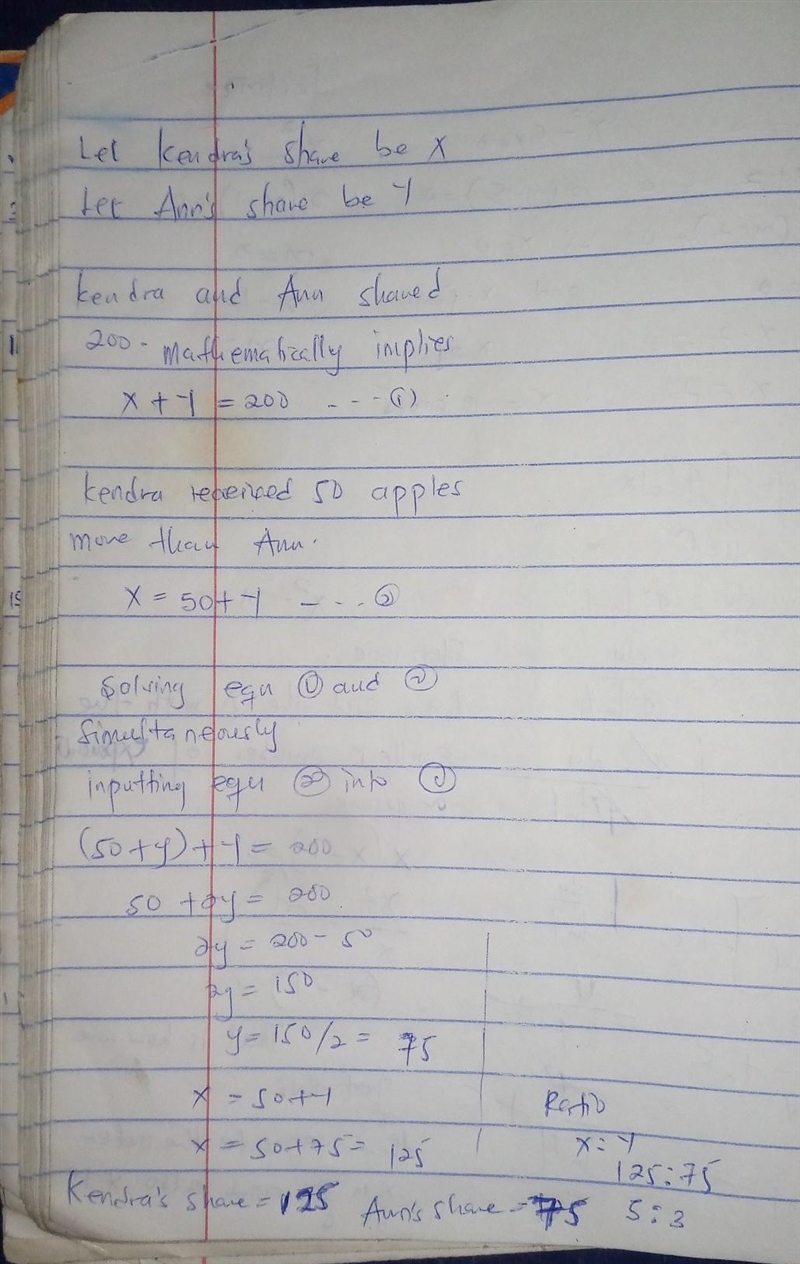 Let Kendra's share be X
Let Ann's share be Y
Kendra and Ann shared
200 - mathematically implies
x + y = 200 - - - (1)
Kendra received 50 apples
more than Ann.
x = 50 + y - - - (2)
Solving equ (1) and (2)
Simultaneously
inputting equ (2) into (1)
(50 + y) + y = 200
50 + 2y = 200
2y = 200 - 50
2y = 150
y = 150/2 = 75
x = 50 + y
x = 50 + 75 = 125
Ratio
x : y
125 : 75
5 : 3
Kendra's share = 125 Ann's share = 75